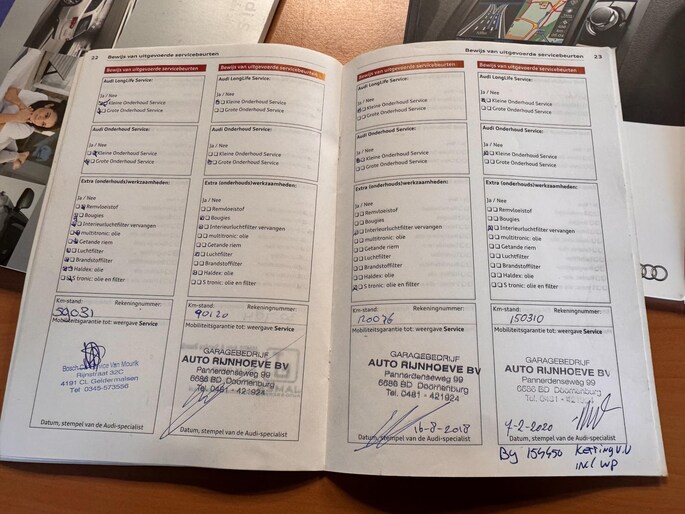 22
Bewijs van uitgevoerde servicebeurten
Bewijs van uitgevoerde servicebeurten
Audi LongLife Service:
Ja / Nee
Kleine Onderhoud Service
Grote Onderhoud Service
Audi Onderhoud Service:
Ja / Nee
Kleine Onderhoud Service
Grote Onderhoud Service
Extra (onderhouds)werkzaamheden:
Ja / Nee
Remvloeistof
Bougies
Interieurluchtfilter vervangen
multitronic: olie
Getande riem
Luchtfilter
Brandstoffilter
Haldex: olie
S tronic: olie en filter
Km-stand:
Rekeningnummer:
59031
Mobiliteitsgarantie tot: weergave Service
Bosch Car Service Van Mourik
Rijnstraat 32C
4191 CL Geldermalsen
Tel 0345-573556
Datum, stempel van de Audi-specialist
Bewijs van uitgevoerde servicebeurten
Audi LongLife Service:
Ja / Nee
Kleine Onderhoud Service
Grote Onderhoud Service
Audi Onderhoud Service:
Ja / Nee
Kleine Onderhoud Service
Grote Onderhoud Service
Extra (onderhouds)werkzaamheden:
Ja / Nee
Remvloeistof
Bougies
Interieurluchtfilter vervangen
multitronic: olie
Getande riem
Luchtfilter
Brandstoffilter
Haldex: olie
S tronic: olie en filter
Km-stand:
Rekeningnummer:
90120
Mobiliteitsgarantie tot: weergave Service
GARAGEBEDRIJF
AUTO RIJNHOEVE BV
Pannerdenseweg 99
6686 BD Doornenburg
Tel. 0481 - 421924
Datum, stempel van de Audi-specialist
Bewijs van uitgevoerde servicebeurten
23
Bewijs van uitgevoerde servicebeurten
Audi LongLife Service:
Ja / Nee
Kleine Onderhoud Service
Grote Onderhoud Service
Audi Onderhoud Service:
Ja / Nee
Kleine Onderhoud Service
Grote Onderhoud Service
Extra (onderhouds)werkzaamheden:
Ja / Nee
Remvloeistof
Bougies
Interieurluchtfilter vervangen
multitronic: olie
Getande riem
Luchtfilter
Brandstoffilter
Haldex: olie
S tronic: olie en filter
Km-stand:
Rekeningnummer:
120076
Mobiliteitsgarantie tot: weergave Service
GARAGEBEDRIJF
AUTO RIJNHOEVE BV
Pannerdenseweg 99
6686 BD Doornenburg
Tel. 0481 - 421924
16-8-2018
Datum, stempel van de Audi-specialist
Bewijs van uitgevoerde servicebeurten
Audi LongLife Service:
Ja / Nee
Kleine Onderhoud Service
Grote Onderhoud Service
Audi Onderhoud Service:
Ja / Nee
Kleine Onderhoud Service
Grote Onderhoud Service
Extra (onderhouds)werkzaamheden:
Ja / Nee
Remvloeistof
Bougies
Interieurluchtfilter vervangen
multitronic: olie
Getande riem
Luchtfilter
Brandstoffilter
Haldex: olie
S tronic: olie en filter
Km-stand:
Rekeningnummer:
150310
Mobiliteitsgarantie tot: weergave Service
GARAGEBEDRIJF
AUTO RIJNHOEVE BV
Pannerdenseweg 99
6686 BD Doornenburg
Tel. 0481 - 421924
4-2-2020
Datum, stempel van de Audi-specialist
By 154450 Ketting V.V
incl WP